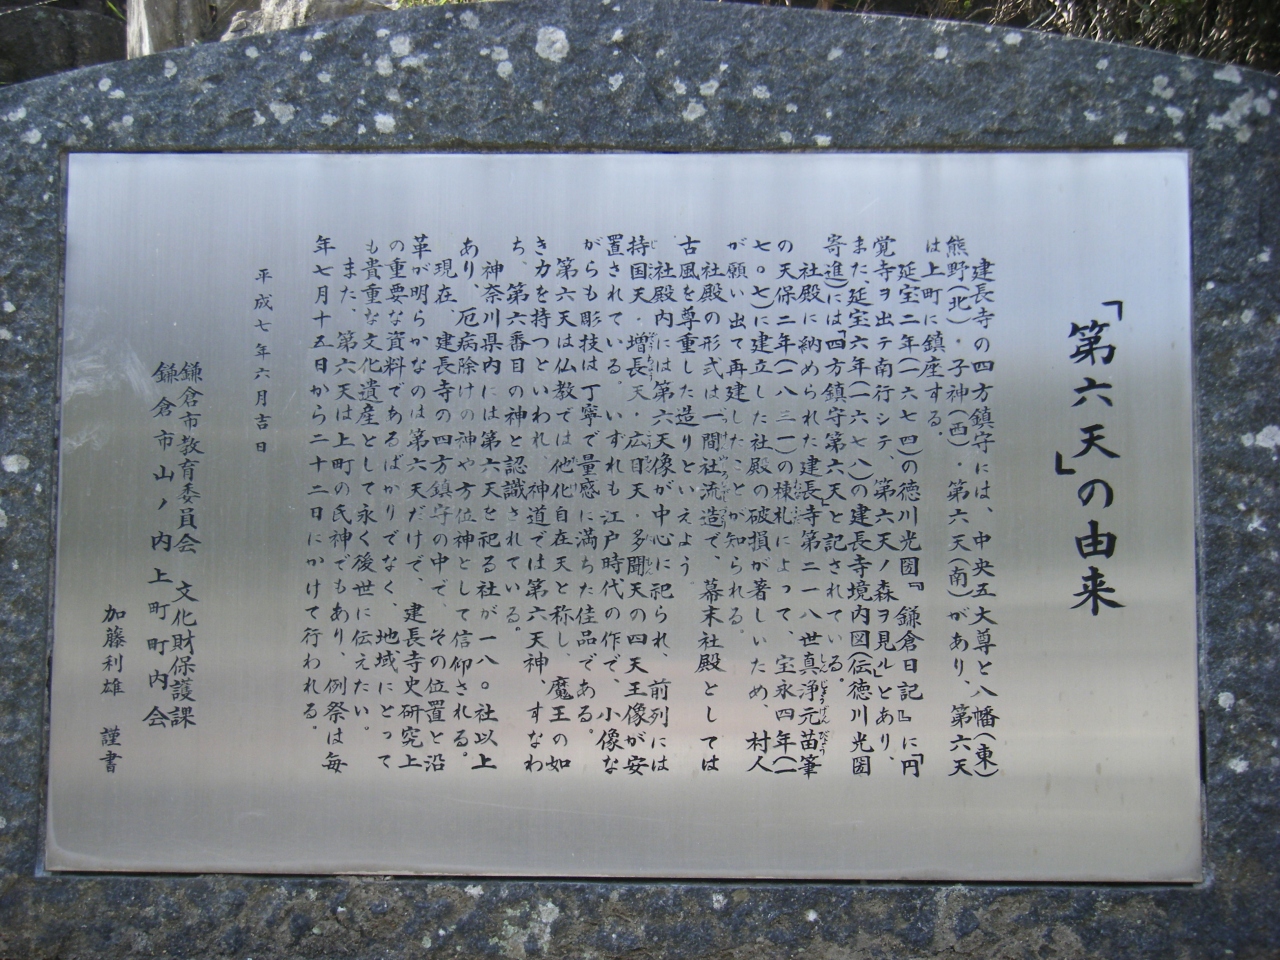 「第六天」の由来
建長寺の四方鎮守には、中央五大尊と八幡(東)
熊野(北)・子神(西)・第六天(南)があり、第六天
は上町に鎮座する。
延宝二年(一六七四)の徳川光圀『鎌倉日記』に「円
覚寺ヲ出テ南行シテ、第六天ノ森ヲ見ル」とあり、
また、延宝六年(一六七八)の建長寺境内図(伝徳川光圀
寄進)には「四方鎮守第六天」と記されている。
社殿に納められた建長寺第二一八世真浄元苗筆
の天保二年(一八三一)の棟札によって、宝永四年(一
七〇七)に建立した社殿の破損が著しいため、村人
が願い出て再建したことが知られる。
社殿の形式は一間社流造で、幕末社殿としては
古風を尊重した造りといえよう
社殿内には第六天像が中心に祀られ、前列には
持国天・増長天・広目天・多聞天の四天王像が安
置されている。いずれも江戸時代の作で、小像な
がらも彫技は丁寧で量感に満ちた佳品である。
第六天は仏教では他化自在天と称し、魔王の如
き力を持つといわれ、神道では第六天神、すなわ
ち、第六番目の神と認識されている。
神奈川県内には第六天を祀る社が一八〇社以上
あり、厄病除けの神や方位神として信仰される。
現在、建長寺の四方鎮守の中で、その位置と沿
革が明らかなのは第六天だけで、建長寺史研究上
の重要な資料であるばかりでなく、地域にとって
も貴重な文化遺産として永く後世に伝えたい。
また、第六天は上町の氏神でもあり、例祭は毎
年七月十五日から二十二日にかけて行われる。
平成七年六月吉日
鎌倉市教育委員会 文化財保護課
鎌倉市山ノ内 上町町内会
加藤利雄 謹書